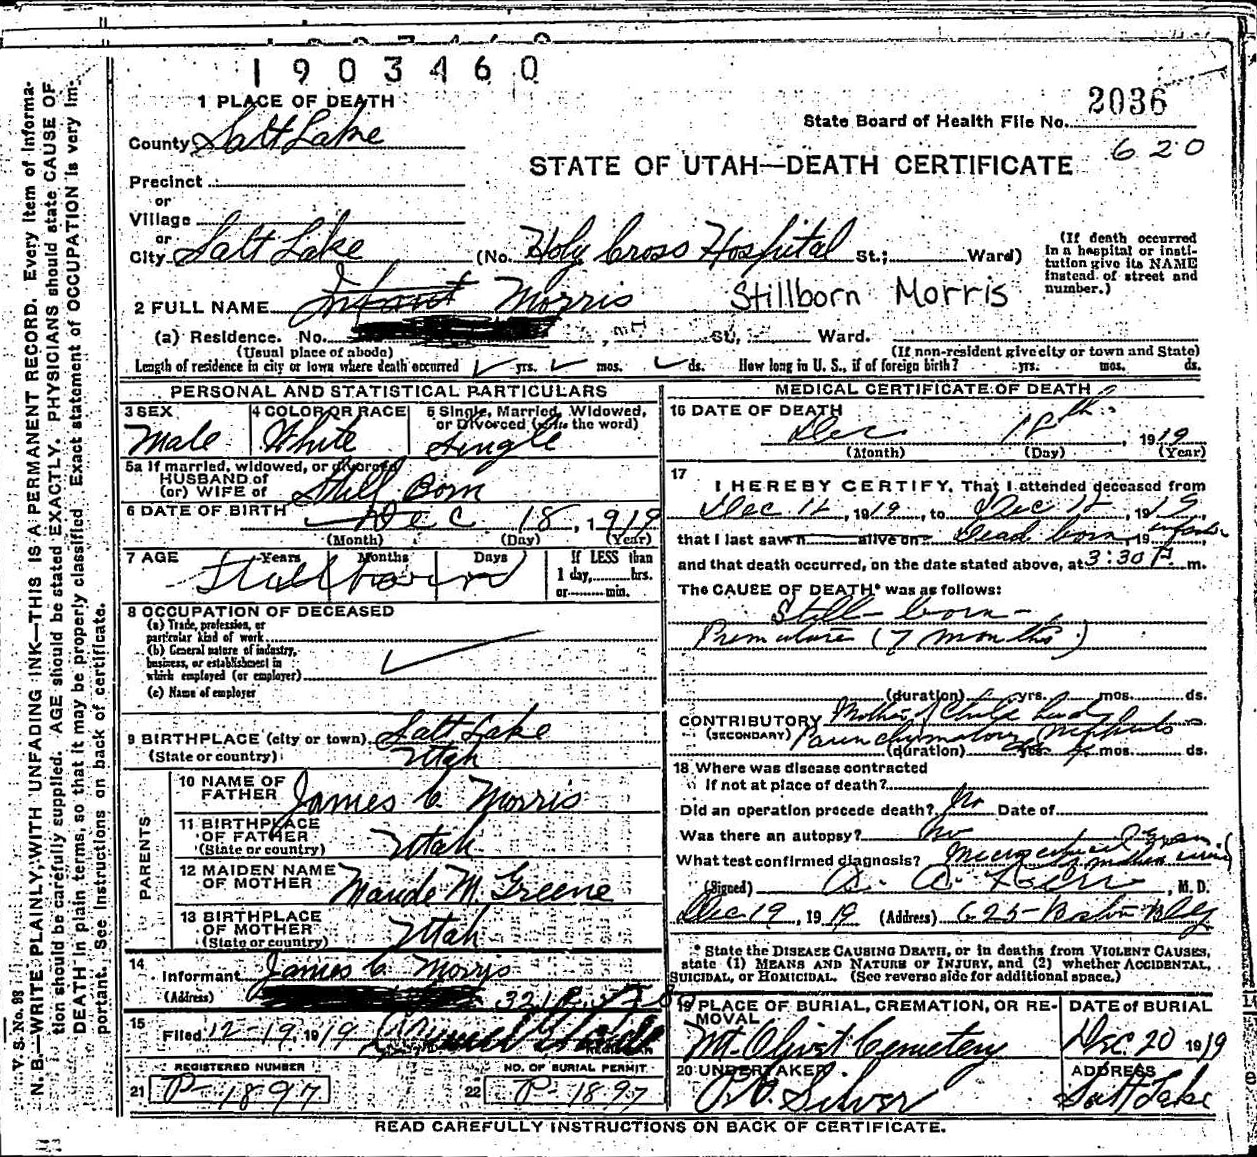 1903460
1 PLACE OF DEATH
2036
State Board of Health File No.
620
County Salt Lake
STATE OF UTAH—DEATH CERTIFICATE
Precinct
or
Village
or
City Salt Lake (No. Holy Cross Hospital St.; Ward)
(If death occurred in a hospital or institution give its NAME instead of street and number.)
2 FULL NAME Infant Morris Stillborn Morris
(a) Residence. No. St., Ward.
(Usual place of abode) (If non-resident give city or town and State)
Length of residence in city or town where death occurred yrs. mos. ds. How long in U. S., if of foreign birth? yrs. mos. ds.
PERSONAL AND STATISTICAL PARTICULARS
3 SEX
Male
4 COLOR OR RACE
White
5 Single, Married, Widowed, or Divorced (write the word)
Single
5a If married, widowed, or divorced
HUSBAND of
(or) WIFE of Still Born
6 DATE OF BIRTH Dec 18, 1919
(Month) (Day) (Year)
7 AGE Years Months Days If LESS than
1 day, hrs.
or min.
Stillborn
8 OCCUPATION OF DECEASED
(a) Trade, profession, or
particular kind of work
(b) General nature of industry,
business, or establishment in
which employed (or employer)
(c) Name of employer
9 BIRTHPLACE (city or town) Salt Lake
(State or country) Utah
PARENTS
10 NAME OF FATHER James C Morris
11 BIRTHPLACE OF FATHER
(State or country) Utah
12 MAIDEN NAME OF MOTHER Maude M. Greene
13 BIRTHPLACE OF MOTHER
(State or country) Utah
14
Informant James C. Morris
(Address)
15
Filed 12-19, 1919
REGISTRAR
REGISTERED NUMBER
21 P-1897
NO. OF BURIAL PERMIT
22 P-1897
MEDICAL CERTIFICATE OF DEATH
16 DATE OF DEATH
Dec 18th, 1919
(Month) (Day) (Year)
17
I HEREBY CERTIFY, That I attended deceased from
Dec 18, 1919, to Dec 18, 1919
that I last saw h alive on Dead born infant, 19
and that death occurred, on the date stated above, at 3:30 P. m.
The CAUSE OF DEATH* was as follows:
Still-born-
Premature (7 months)
(duration) yrs. mos. ds.
CONTRIBUTORY Mother of Child had
(SECONDARY) Parenchymatous Nephritis
(duration) yrs. mos. ds.
18 Where was disease contracted
if not at place of death?
Did an operation precede death? No Date of
Was there an autopsy? No
What test confirmed diagnosis?
(Signed) , M. D.
Dec 19, 1919 (Address) 625-Boston Bldg
* State the DISEASE CAUSING DEATH, or in deaths from VIOLENT CAUSES,
state (1) MEANS AND NATURE OF INJURY, and (2) whether ACCIDENTAL,
SUICIDAL, or HOMICIDAL. (See reverse side for additional space.)
19 PLACE OF BURIAL, CREMATION, OR REMOVAL
Mt. Olivet Cemetery
DATE OF BURIAL
Dec. 20 1919
20 UNDERTAKER
Silver
ADDRESS
Salt Lake
READ CAREFULLY INSTRUCTIONS ON BACK OF CERTIFICATE.
V. S. No. 98
N. B.—WRITE PLAINLY, WITH UNFADING INK—THIS IS A PERMANENT RECORD. Every item of information
should be carefully supplied. AGE should be stated EXACTLY. PHYSICIANS should state CAUSE OF
DEATH in plain terms, so that it may be properly classified. Exact statement of OCCUPATION is very important.
See Instructions on back of certificate.